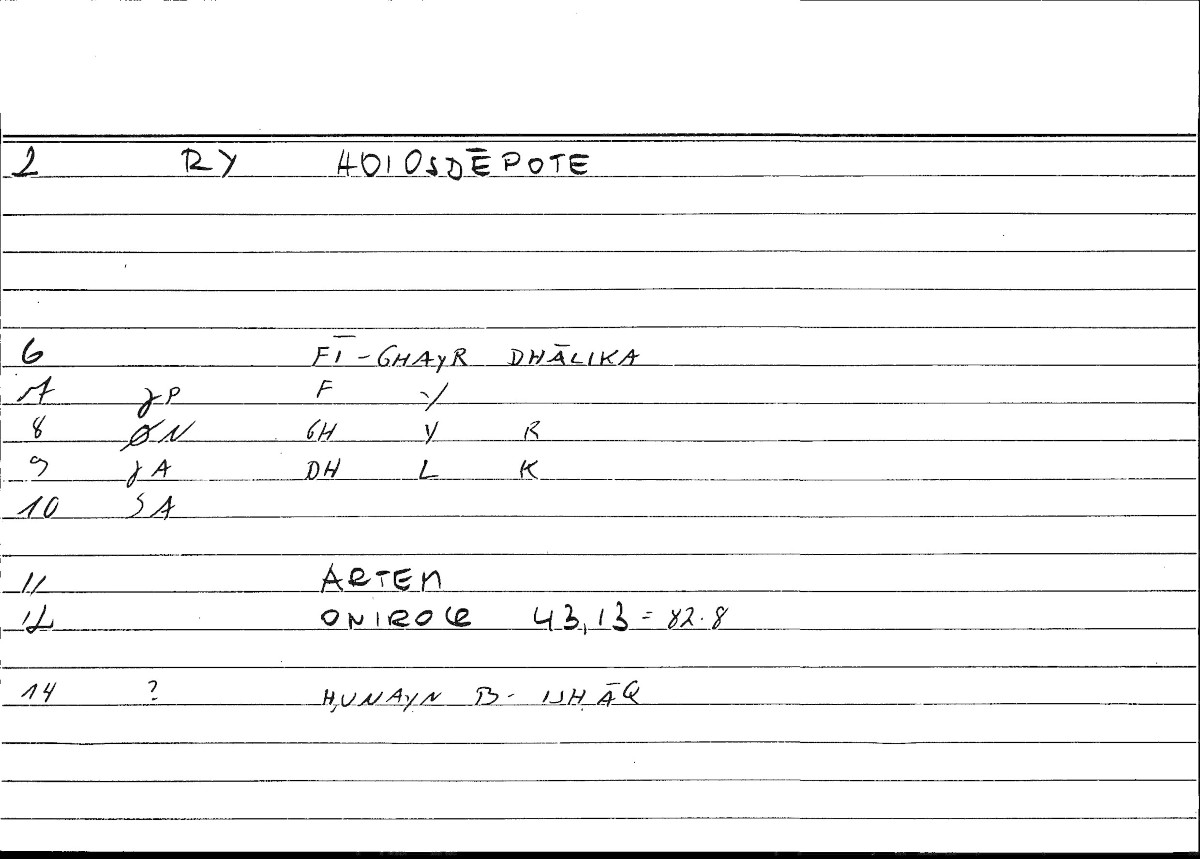 2 RY HOIOSDĒPOTE
6 FĪ-GHAYR DHĀLIKA
7 γP F Y
8 ØN GH Y R
9 γA DH L K
10 SA
11 ARTEM
12 ONIROCR 43,13 = 82.8
14 ? H,UNAYN B- ISH,ĀQ